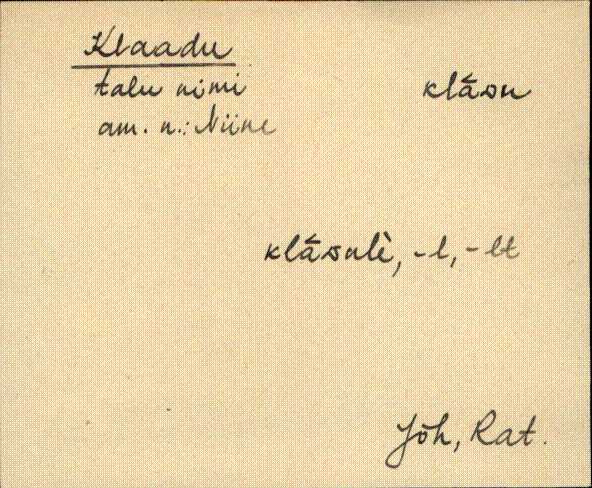 Klaadu
talu nimi klāsu
am. n.: Niine
klāsulè, -l, -lt
Jõh, Rat.